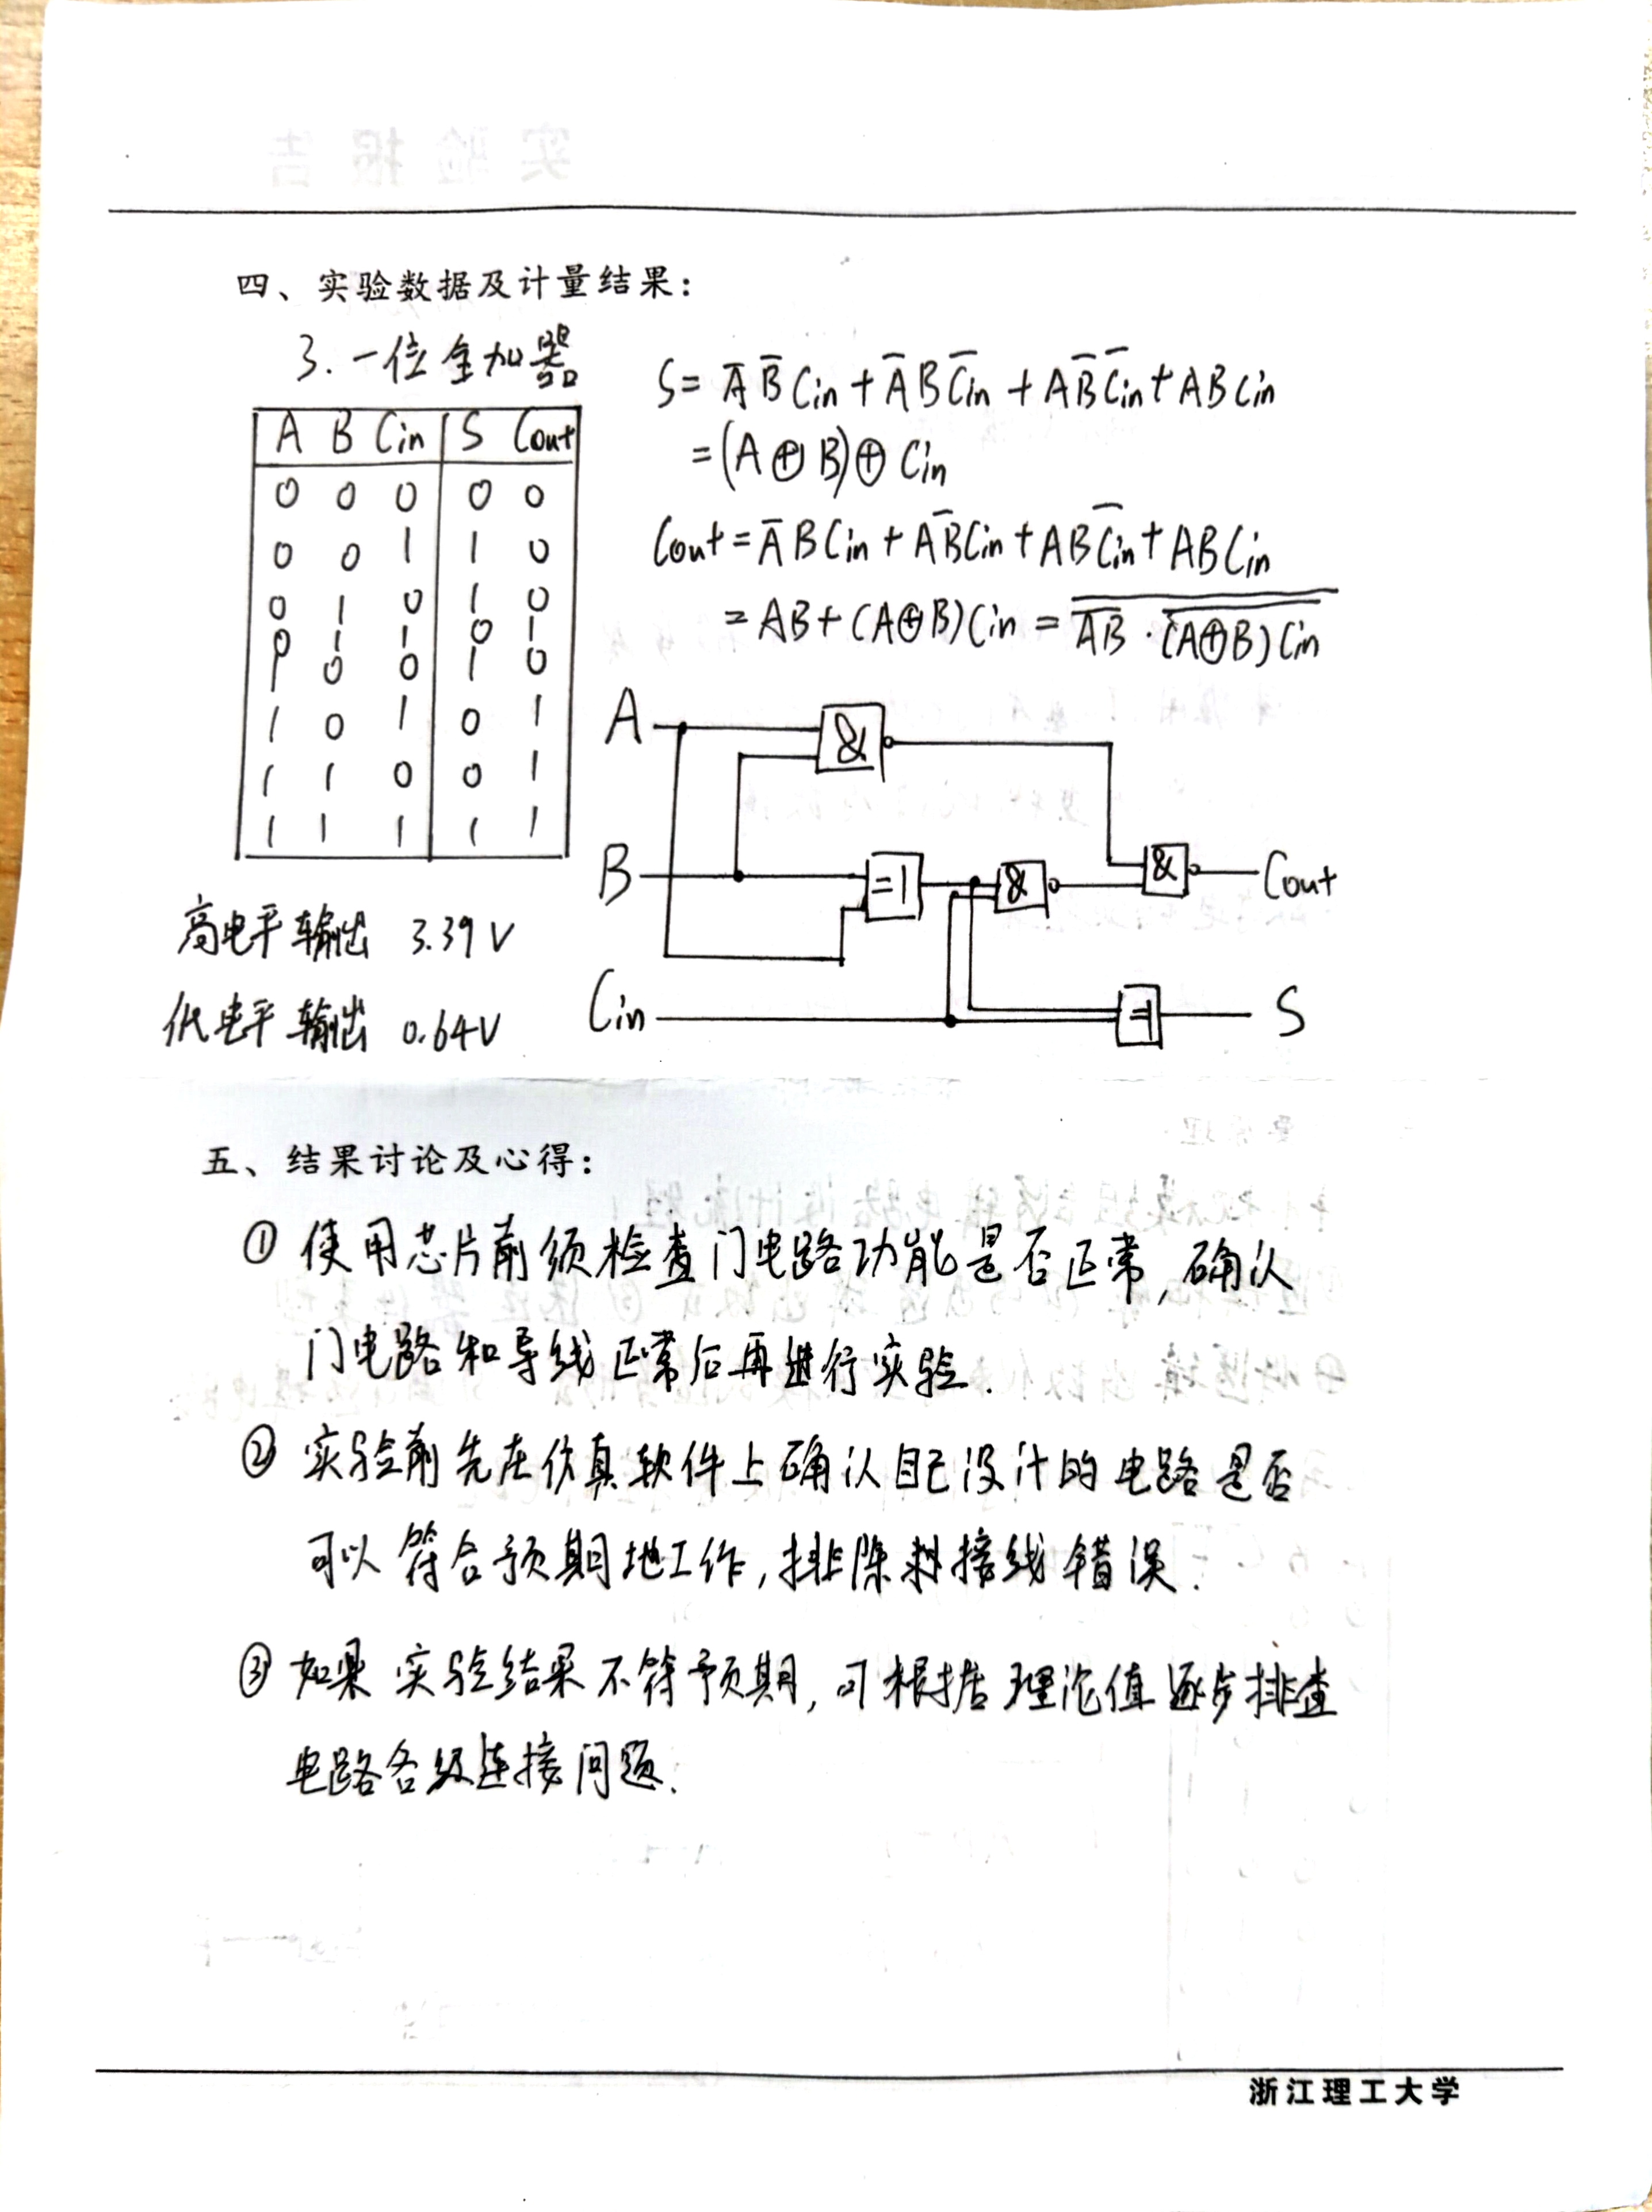 四、实验数据及计量结果：
3. 一位全加器
A B Cin S Cout
0 0 0 0 0
0 0 1 1 0
0 1 0 1 0
0 1 1 0 1
1 0 0 1 0
1 0 1 0 1
1 1 0 0 1
1 1 1 1 1
高电平输出 3.39V
低电平输出 0.64V
S = A̅ B̅ Cin + A̅ B C̅i̅n̅ + A B̅ C̅i̅n̅ + A B Cin
= (A ⊕ B) ⊕ Cin
Cout = A̅ B Cin + A B̅ Cin + A B C̅i̅n̅ + A B Cin
= AB + (A⊕B) Cin = \overline{\overline{AB} · \overline{(A⊕B) Cin}}
A
&
B
=1
&
& Cout
Cin
=1 S
五、结果讨论及心得：
① 使用芯片前须检查门电路功能是否正常, 确认
门电路和导线正常后再进行实验.
② 实验前先在仿真软件上确认自己设计的电路是否
可以符合预期地工作, 排除接线错误.
③ 如果实验结果不符预期, 可根据理论值逐步排查
电路各级连接问题.
浙江理工大学